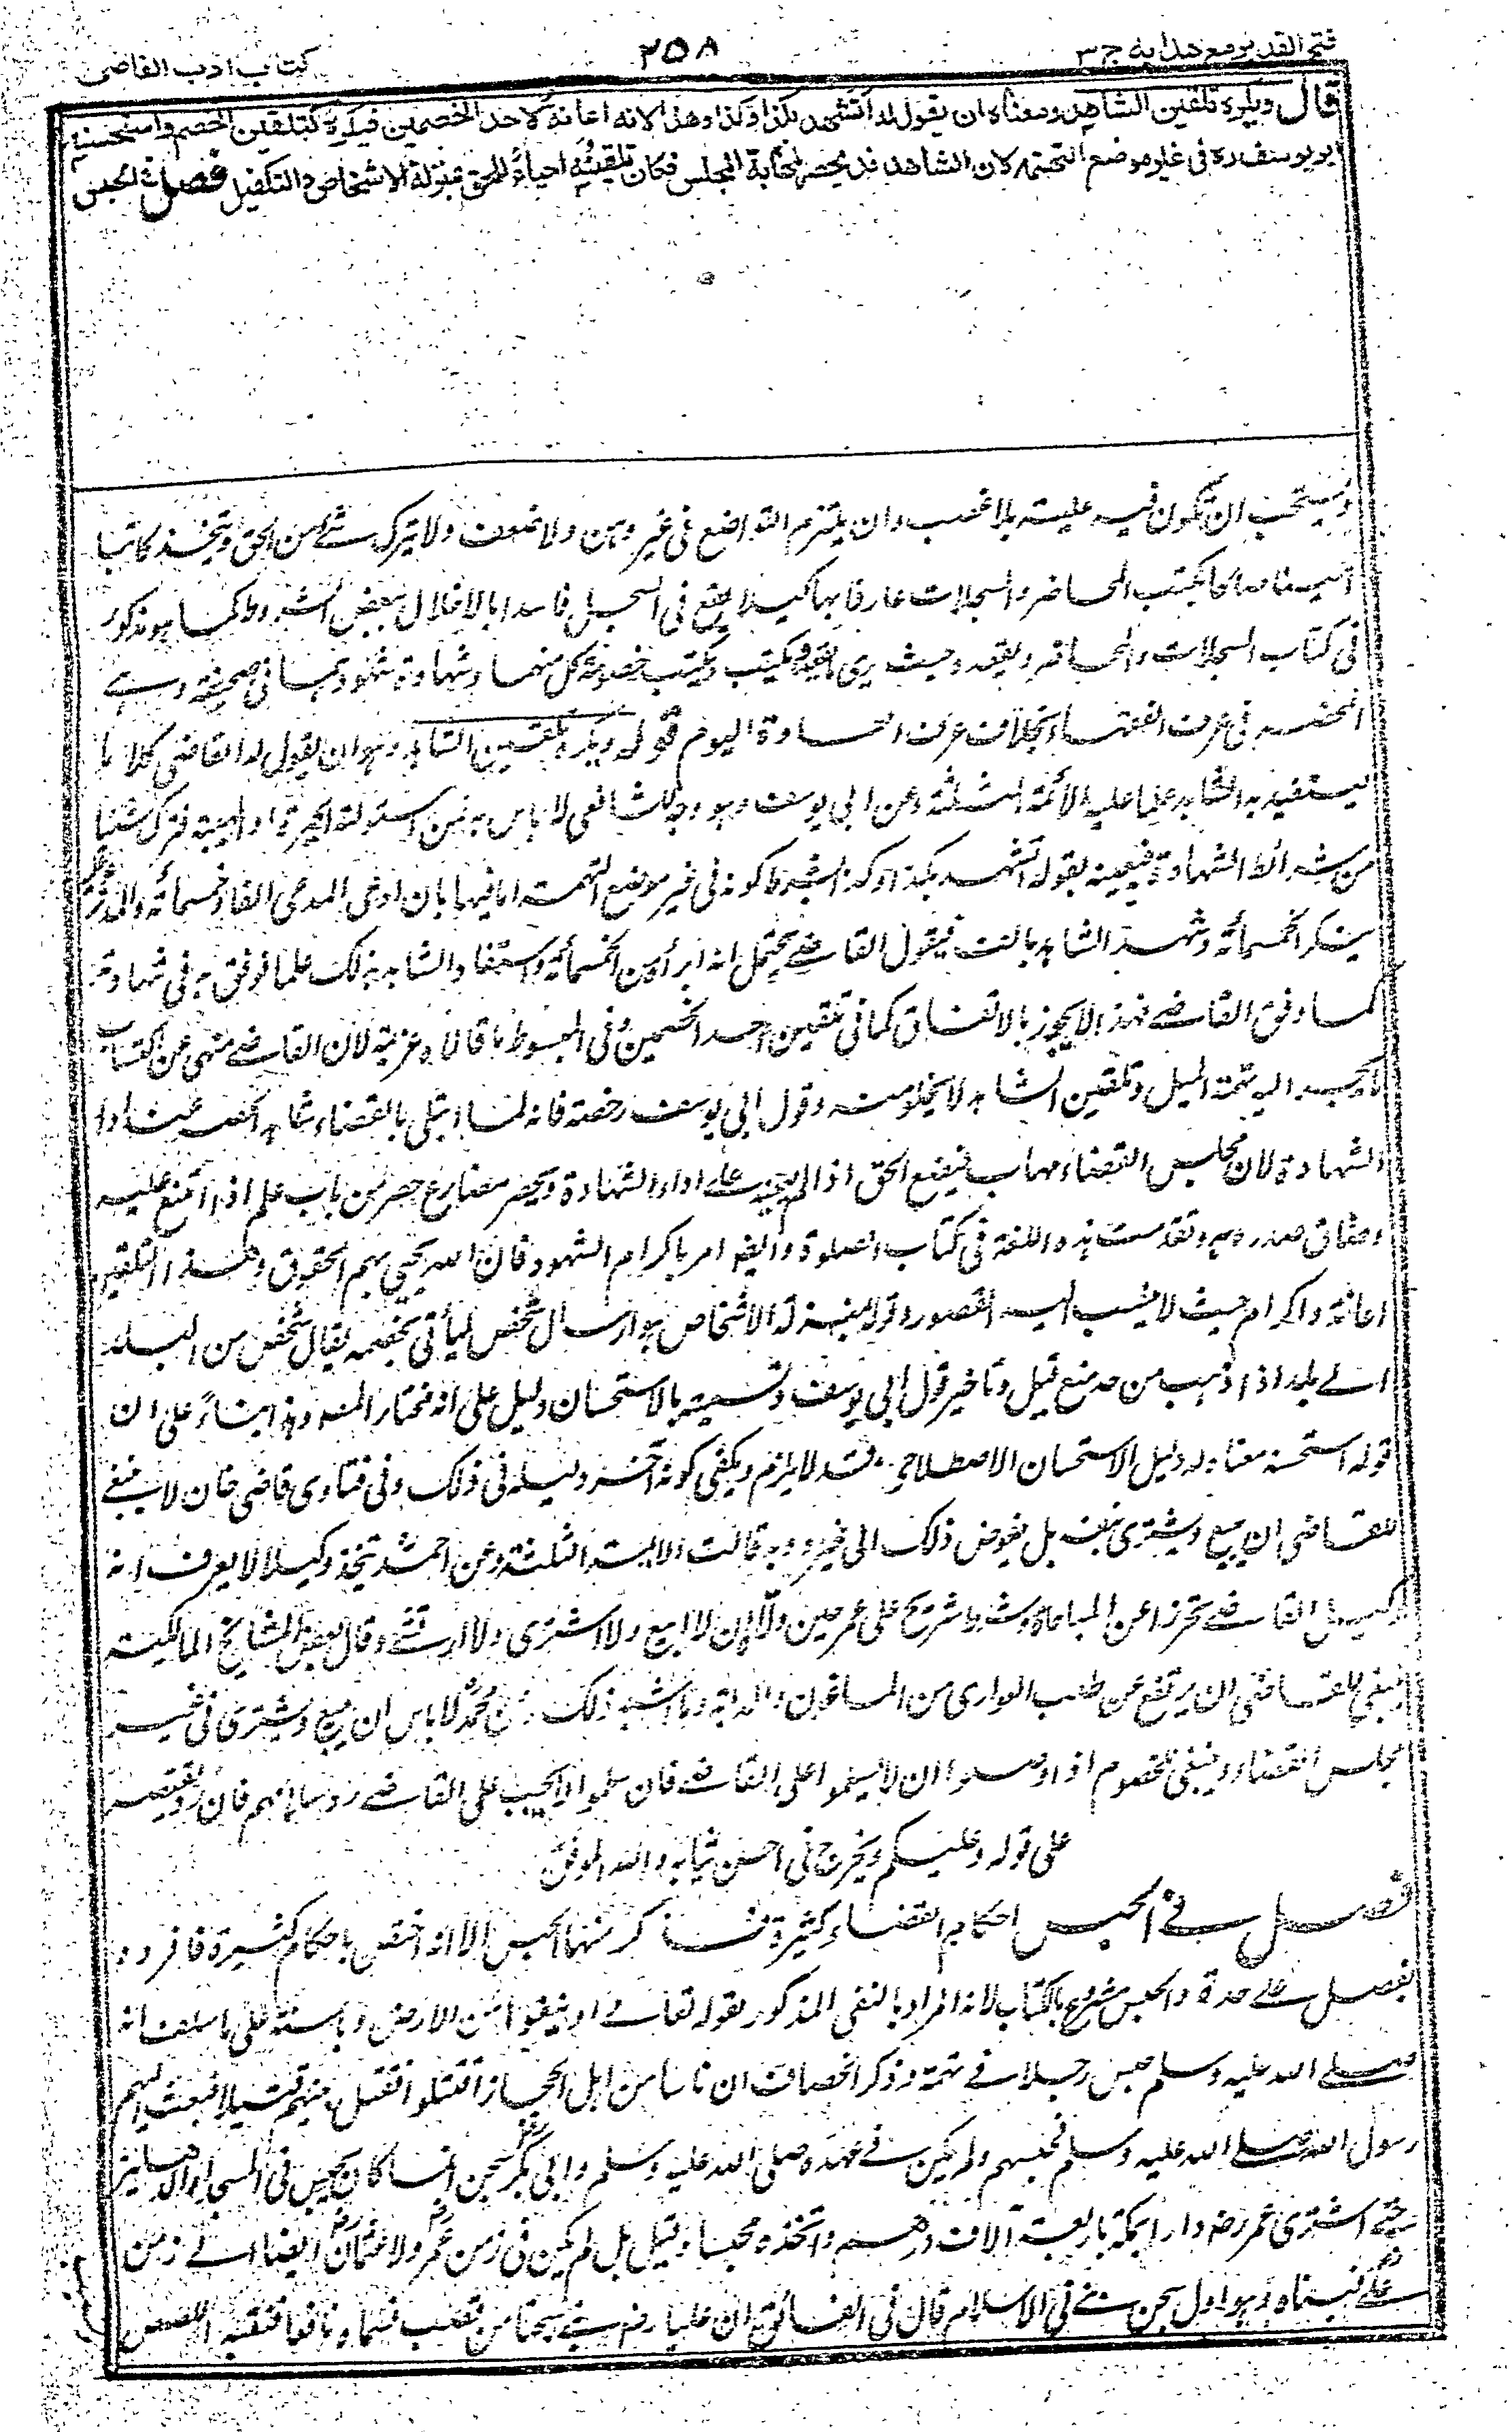 فتح القدير مع هدايه ج ٣
٢٥٨
كتاب ادب القاضى
قال ويكره تلقين الشاهد ومعناه ان يقول له أتشهد بكذا وكذا وهذا لانه اعانة لاحد الخصمين فيكره كتلقين الخصم واستحسنه
ابو يوسف ره فى غير موضع التهمة لان الشاهد قد يحصر لمهابة المجلس فكان تلقينه احياءً للحق بمنزلة الاشخاص والتكفيل فصل فى الحبس
ويستحب ان تكون فيه عبسة بلا غضب وان يلتزم التواضع فى غير وهن ولا ضعف ولا يترك شئ من الحق ويتخذ كاتبا
امينا صالحا يكتب المحاضر والسجلات عارفا بها كيلا يقع فى السجل فاسدا بالاخلال ببعض الشروط كما هو مذكور
فى كتاب السجلات والمحاضر ويقعد حيث يرى ما يكتب ويكتب خصومة كل منهما وشهادة شهودهما فى صحيفة وهى
المحضر فى عرف الفقهاء بخلاف عرف العادة اليوم قوله ويكره تلقين الشاهد وهو ان يقول له القاضى كلاما
يستفيد به الشاهد علما عليه الائمة الثلثة وعن ابى يوسف وهو وجه للشافعى لا باس به لمن استولته الحيرة او الهيبة فترك شيئا
من شرائط الشهادة فيعينه بقوله اتشهد بكذا وكذا بشرط كونه فى غير موضع التهمة اما فيها بان ادعى المدعى الفا وخمسمائة والمدعى عليه
ينكر الخمسمائة وشهد الشاهد بالف فيقول القاضى يحتمل انه ابرأه من الخمسمائة واستفاد الشاهد بذلك علما فوفق به فى شهادته
كما وفق القاضى فهذا لا يجوز بالاتفاق كما فى تلقين احد الخصمين وفى المبسوط ما قالاه عزيمة لان القاضى منهى عن اكتساب
ما يجر اليه تهمة الميل وتلقين الشاهد لا يخلو منه وقول ابى يوسف رخصة فانه لما ابتلى بالقضاء شاهد الحصر عند اداء
الشهادة لان مجلس القضاء مهاب فيضيع الحق اذا لم يعنه على اداء الشهادة ويحصر مضارع حصر من باب علم اذا امتنع عليه
وضاق صدره به وتقدمت هذه اللغة فى كتاب الصلوة وايضا امر باكرام الشهود فان الله يحيى بهم الحقوق وهذا التلقين
اعانة واكرام حيث لا ينسب اليه القصور وقوله بمنزلة الاشخاص هو ارسال شخص ليأتى بخصمه يقال شخص من البلد
الى بلد اذا ذهب من حد منع قيل وتاخير قول ابى يوسف وتسميته بالاستحسان دليل على انه مختار المصنف وهذا بناءً على ان
قوله استحسنه معناه له دليل الاستحسان الاصطلاحى وقد لا يلزم ويكفى كونه آخر دليله فى ذلك وفى فتاوى قاضى خان لا ينبغى
للقاضى ان يبيع ويشترى بنفسه بل يفوض ذلك الى غيره وبه قالت الائمة الثلثة وعن احمد يتخذ وكيلا لا يعرف انه
وكيل القاضى تحرزا عن المحاباة وشرط شريح على عمر حين ولاه ان لا ابيع ولا اشترى ولا ارتشى وقال بعض المشايخ المالكية
ينبغى للقاضى ان يرتفع عن طلب العوارى من الماعون والدابة وما اشبه ذلك وعن محمد لا باس ان يبيع ويشترى فى غير
مجلس القضاء وينبغى للخصوم اذا وصلوا ان لا يسلموا على القاضى فان سلموا لا يجب على القاضى رد سلامهم فان رد يقتصر
على قوله وعليكم ويخرج فى احسن ثيابه والله الموفق
فصل فى الحبس احكام القضاء كثيرة فذكر منها الحبس الا انه اختص باحكام كثيرة فافرده
بفصل على حدة والحبس مشروع بالكتاب لانه المراد بالنفى المذكور بقوله تعالى او ينفوا من الارض وبالسنة على ما سلف انه
صلى الله عليه وسلم حبس رجلا فى تهمة وذكر الخصاف ان ناسا من اهل الحجاز اقتتلوا فقتل بينهم قتيلا فبعث اليهم
رسول الله صلى الله عليه وسلم فحبسهم ولم يكن فى عهده صلى الله عليه وسلم وابى بكر سجن انما كان يحبس فى المسجد او الدهليز
حتى اشترى عمر رضه دارا بمكة باربعة آلاف درهم واتخذه محبسا وقيل بل لم يكن فى زمن عمر ولا عثمان ايضا الى زمن
على فبناه وهو اول سجن بنى فى الاسلام قال فى الفائق ان عليا رضه بنى سجنا من قصب فسماه نافعا فنقبه اللصوص